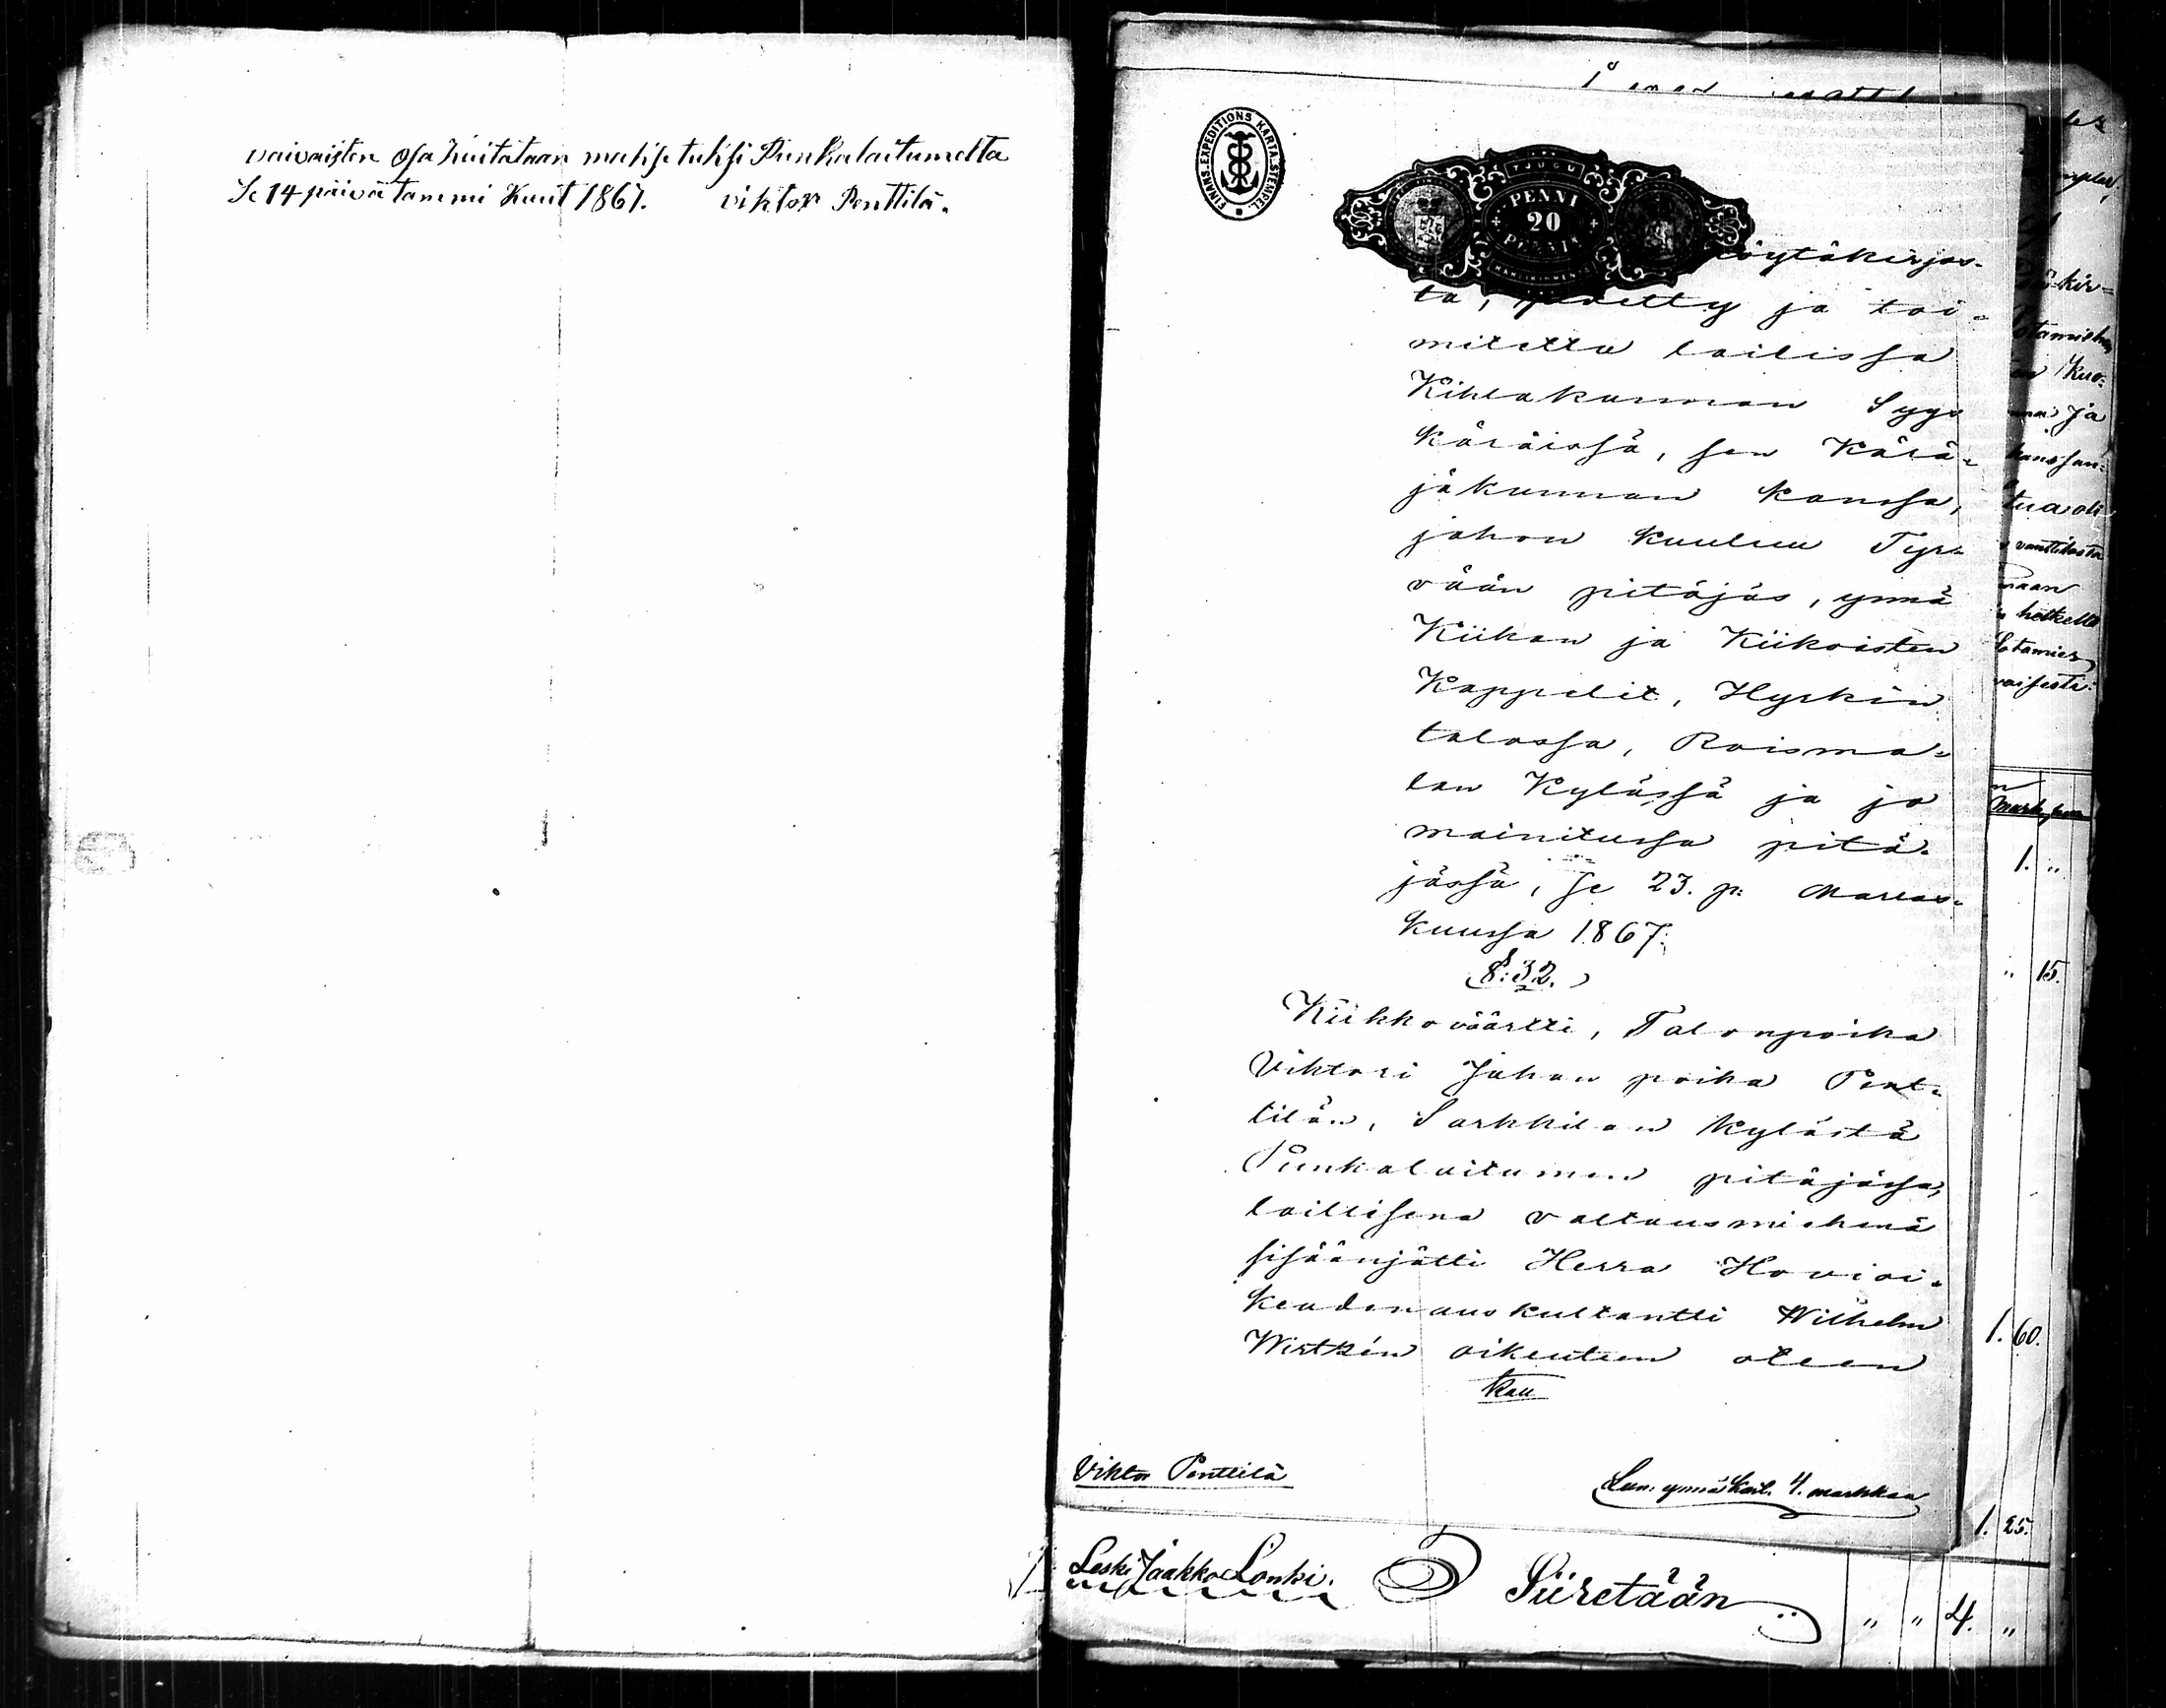 vaivaisten osa kuitataan maksetuksi Punkalaitumelta
Se 14 päivä tammi Kuut 1867. viktor Penttilä.
FINANS. EXPEDITIONS KARTA. STEMPEL
TJUGU
PENNI
20
öytäkirjas-
ta, ja toi-
mitettu lailissa
Kihlakunnan Syys
Käräissä, sen Kärä-
jäkunnan kanssa,
johon kuuluu Tyr-
vään pitäjäs, ynnä
Kiikan ja Kiikoisten
Kappelit, Hyrkin
talossa, Roisma-
lan Kylässä ja jo
mainitussa pitä-
jässä, se 23. p: Marras-
kuussa 1867.
§:32.
Kiikkovääriti, Talonpoika
Viktori Juhan poika Pent-
tilän, Sarkkilan Kylästä
Punkalaitumen pitäjässä,
laillisena valtausmiehenä
sisäänjätti Herra Hovioi-
keudenauskultantti Wilhelm
oikeuteen oteen
Kau
Viktor Penttilä
Lun. ynnä Kart. 4. markkaa
Leski Jaakko Lonki.
Siiretään
" " 4. "
kir-
Kuo-
ja
tua oli
maan
hetkellä
Mark
1. "
" 15.
1. 60.
1. 25.